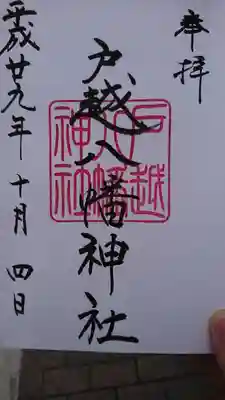 奉拝
戸越八幡神社
戸越八幡神社
平成廿九年十月四日